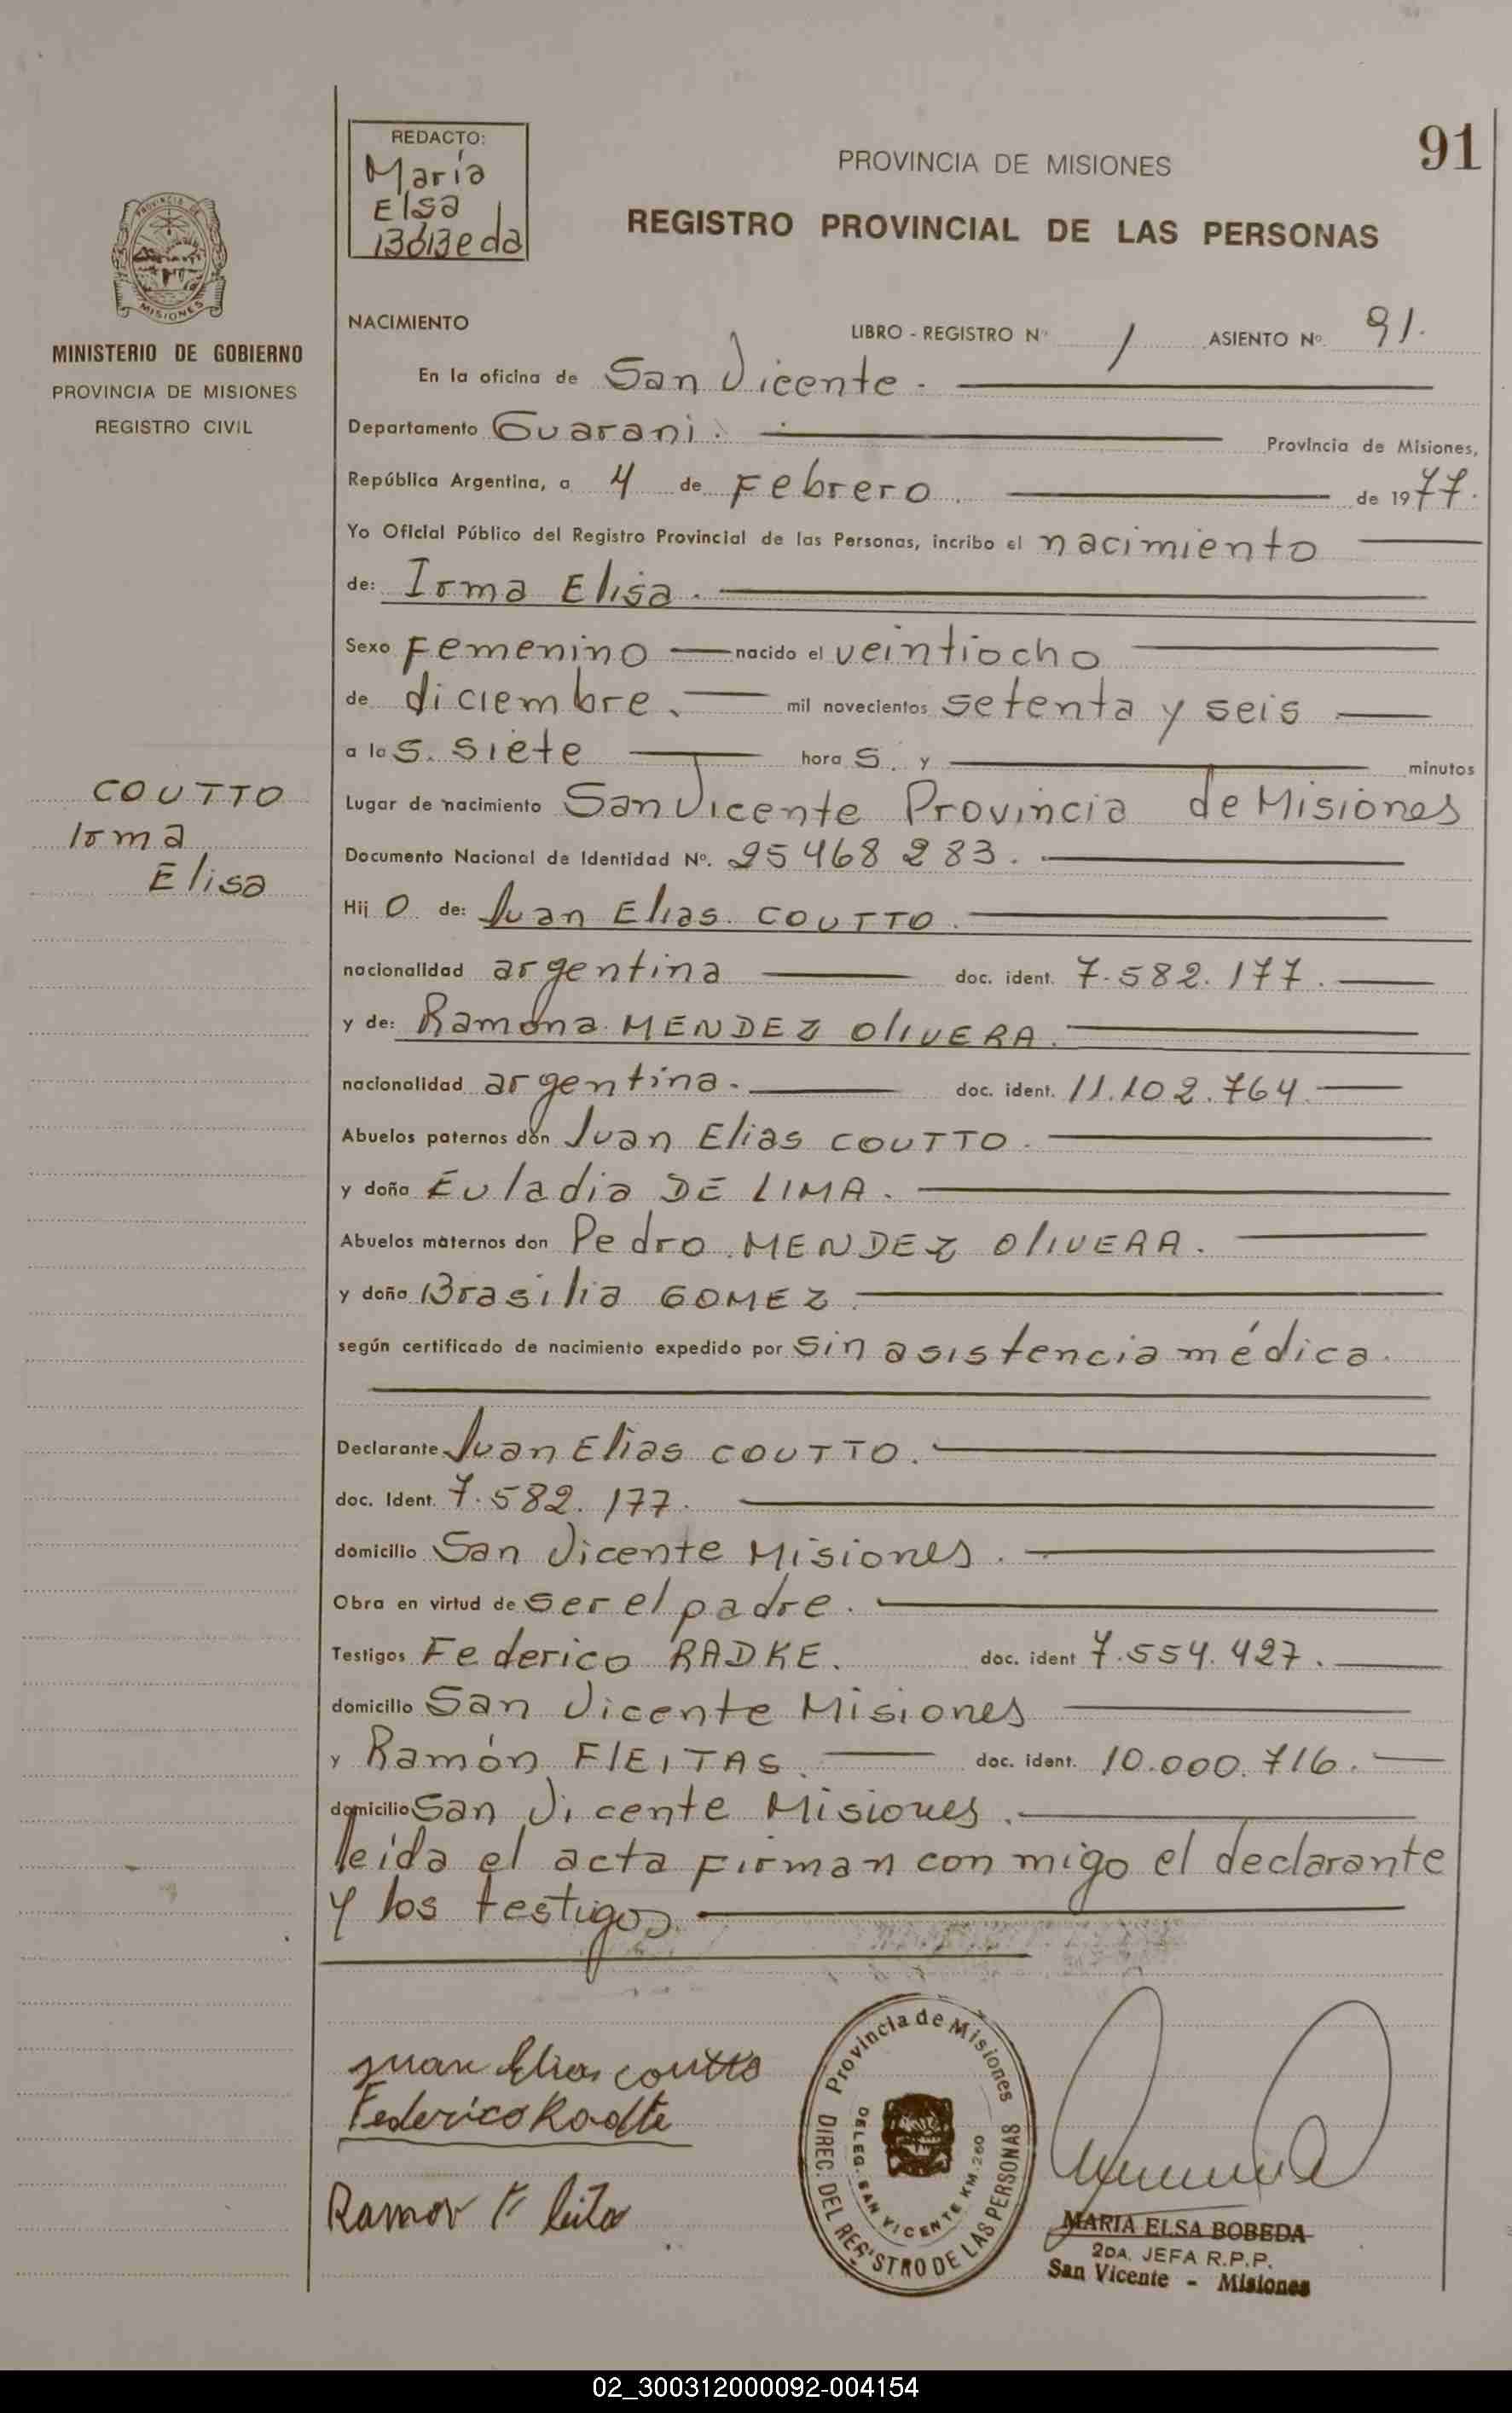 REDACTO:
María
Elsa
Bobeda
91
PROVINCIA DE MISIONES
REGISTRO PROVINCIAL DE LAS PERSONAS
PROVINCIA DE
MISIONES
MINISTERIO DE GOBIERNO
PROVINCIA DE MISIONES
REGISTRO CIVIL
NACIMIENTO
LIBRO - REGISTRO Nº 1 ASIENTO Nº 91.
En la oficina de San Vicente.
Departamento Guarani. Provincia de Misiones,
República Argentina, a 4 de Febrero. de 1977.
Yo Oficial Público del Registro Provincial de las Personas, incribo el nacimiento
de: Irma Elisa.
Sexo Femenino nacido el veintiocho
de diciembre. mil novecientos setenta y seis
a las. siete horas. y minutos
COUTTO
Irma
Elisa
Lugar de nacimiento San Vicente Provincia de Misiones
Documento Nacional de Identidad Nº. 25468283.
Hijo de: Juan Elias COUTTO.
nacionalidad argentina doc. ident. 7.582.177.
y de: Ramona MENDEZ OlIVERA.
nacionalidad argentina. doc. ident. 11.102.764.
Abuelos paternos don Juan Elias COUTTO.
y doña Euladia DE LIMA.
Abuelos maternos don Pedro MENDEZ OlIVERA.
y doña Brasilia GOMEZ.
según certificado de nacimiento expedido por sin asistencia médica.
Declarante Juan Elias COUTTO.
doc. Ident. 7.582.177.
domicilio San Vicente Misiones.
Obra en virtud de ser el padre.
Testigos Federico RADKE. doc. ident 7.554.427.
domicilio San Vicente Misiones
y Ramón FlEITAS. doc. ident. 10.000.716.
domicilio San Vicente Misiones.
leida el acta firman con migo el declarante
y los testigos.
juan Elias coutto
Federico Radke
Ramon
Provincia de Misiones
DIREC. DEL REGISTRO DE LAS PERSONAS
DELEG. SAN VICENTE KM. 260
MARIA ELSA BOBEDA
2DA. JEFA R.P.P.
San Vicente - Misiones
02_300312000092-004154